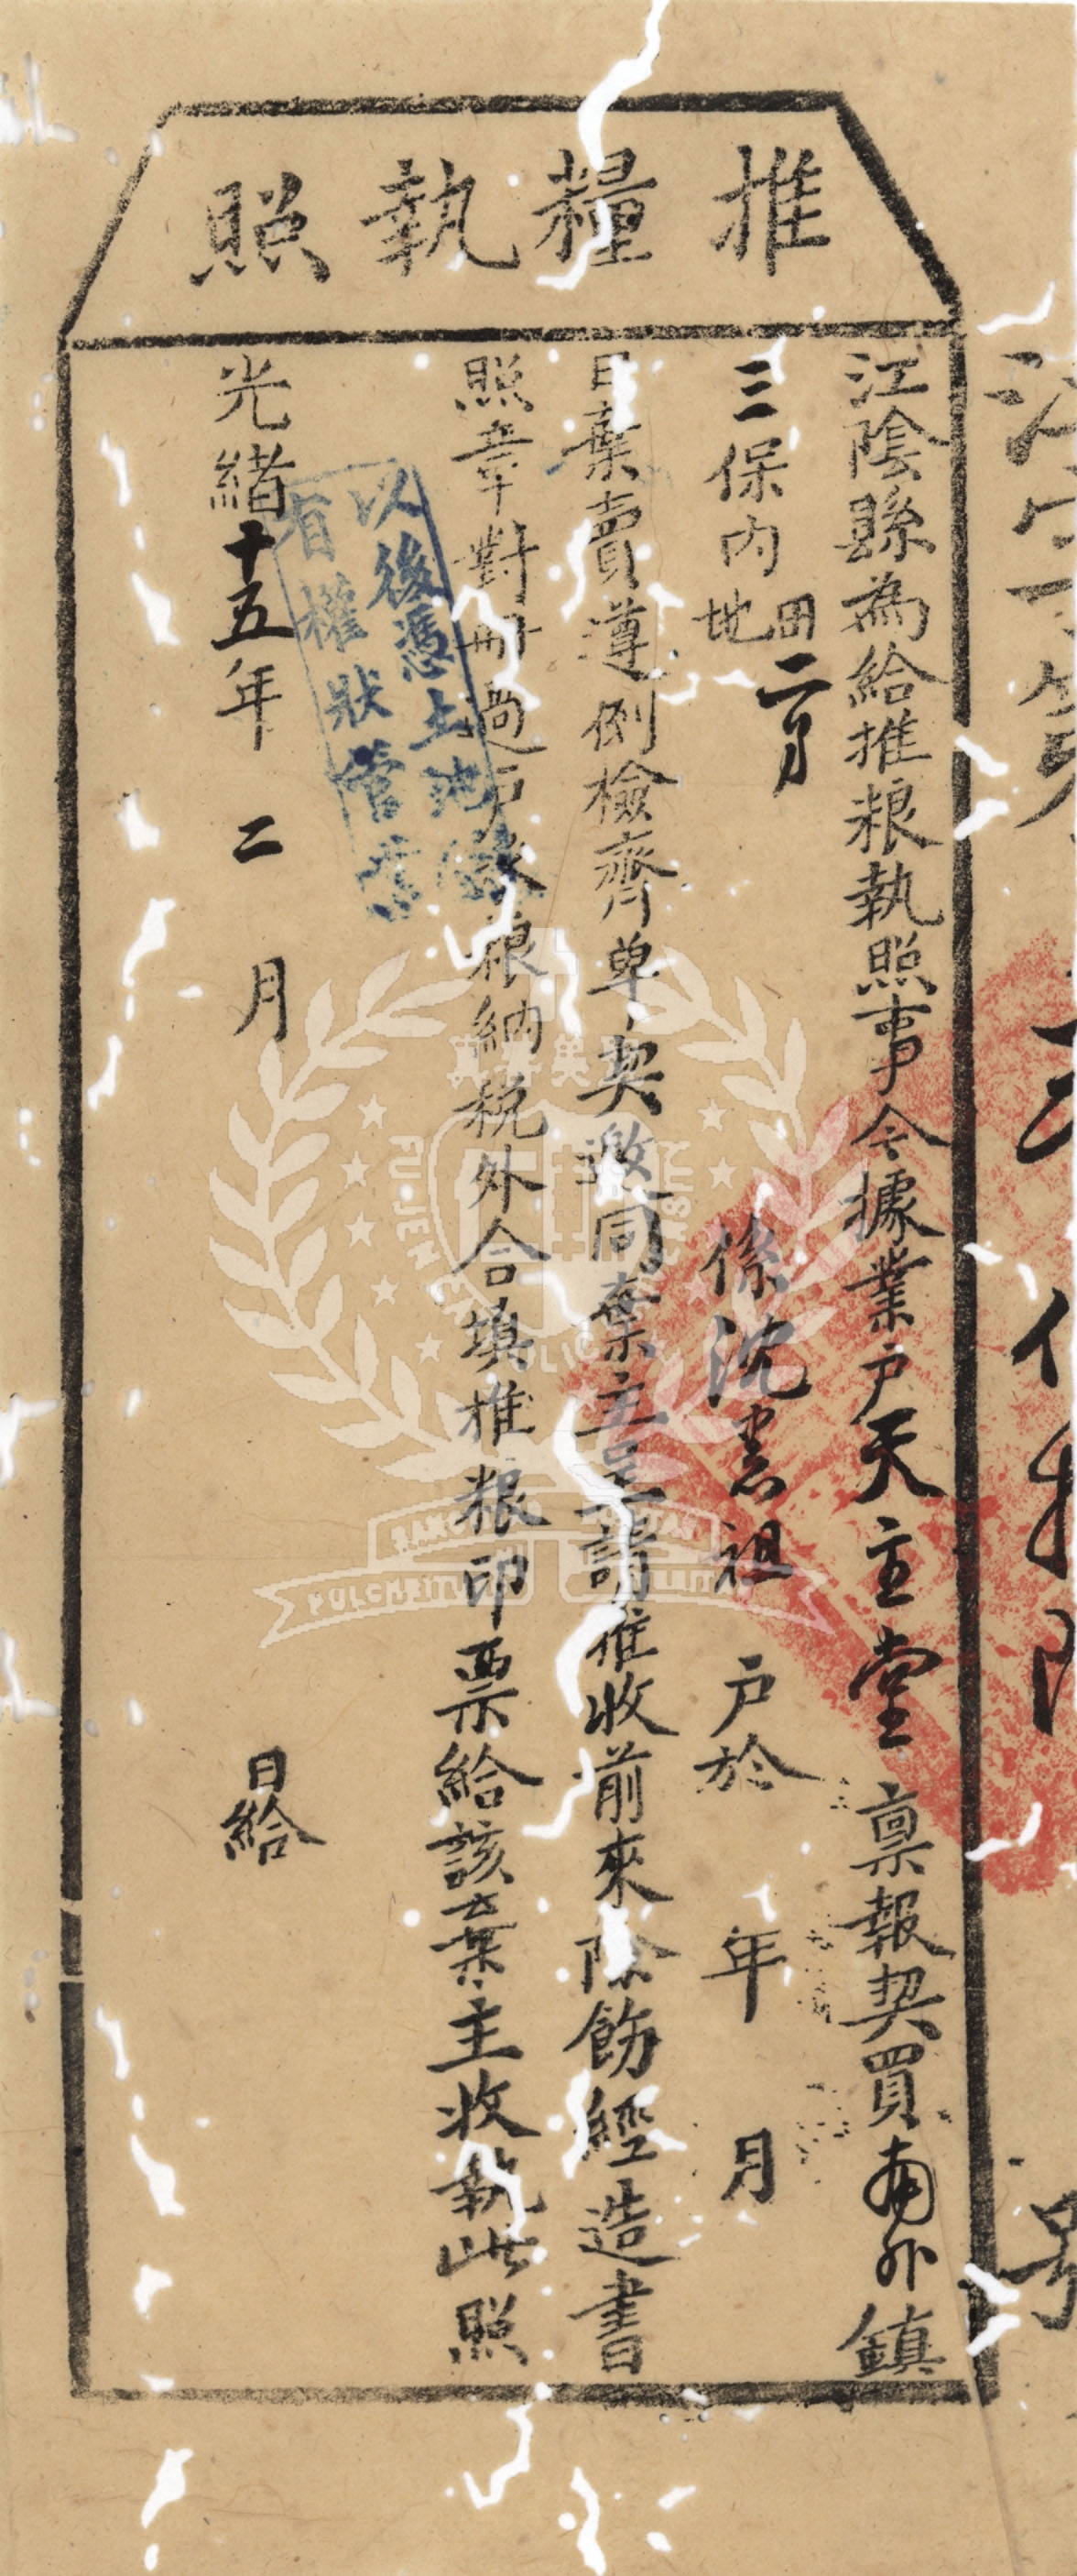 推糧執照
江陰縣為給推粮執照事今據業戶天主堂稟報契買南外鎮
三保内田地二 係沈 祖戶於 年 月
日棄賣遵例檢齊单契邀同棄主呈請推收前來除飭經造書
照章對冊過戶承粮納税外合填推粮印票給該業主收執此照
光緒十五年二月 日給
以後憑土地
有權狀管業